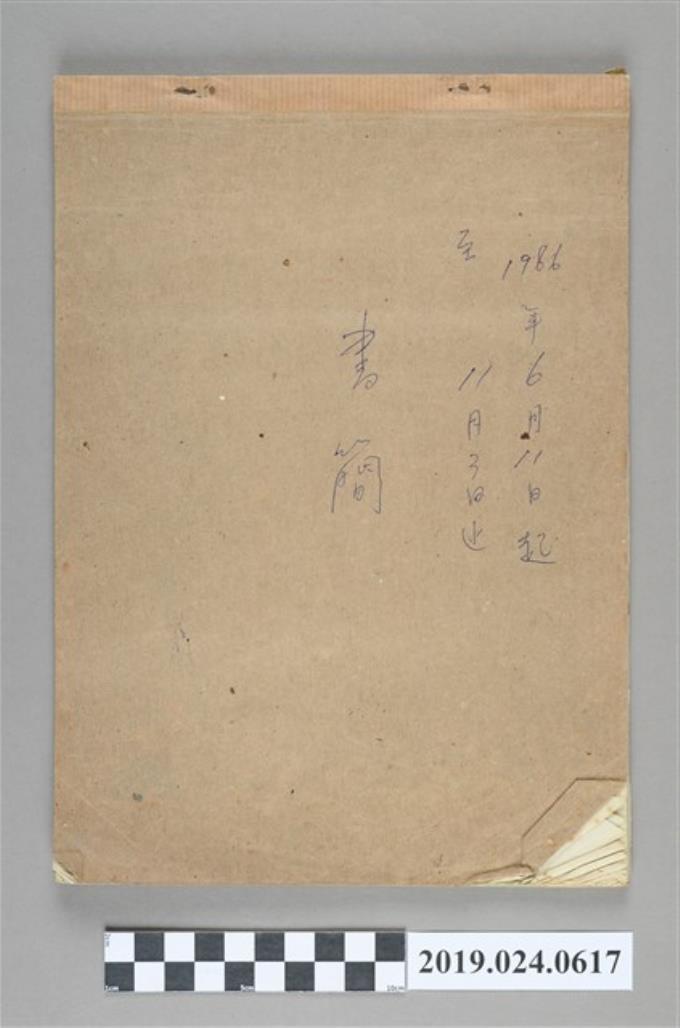 1986年6月11日起
至 11月3日止
書簡
2019.024.0617
1cm
5cm
10cm